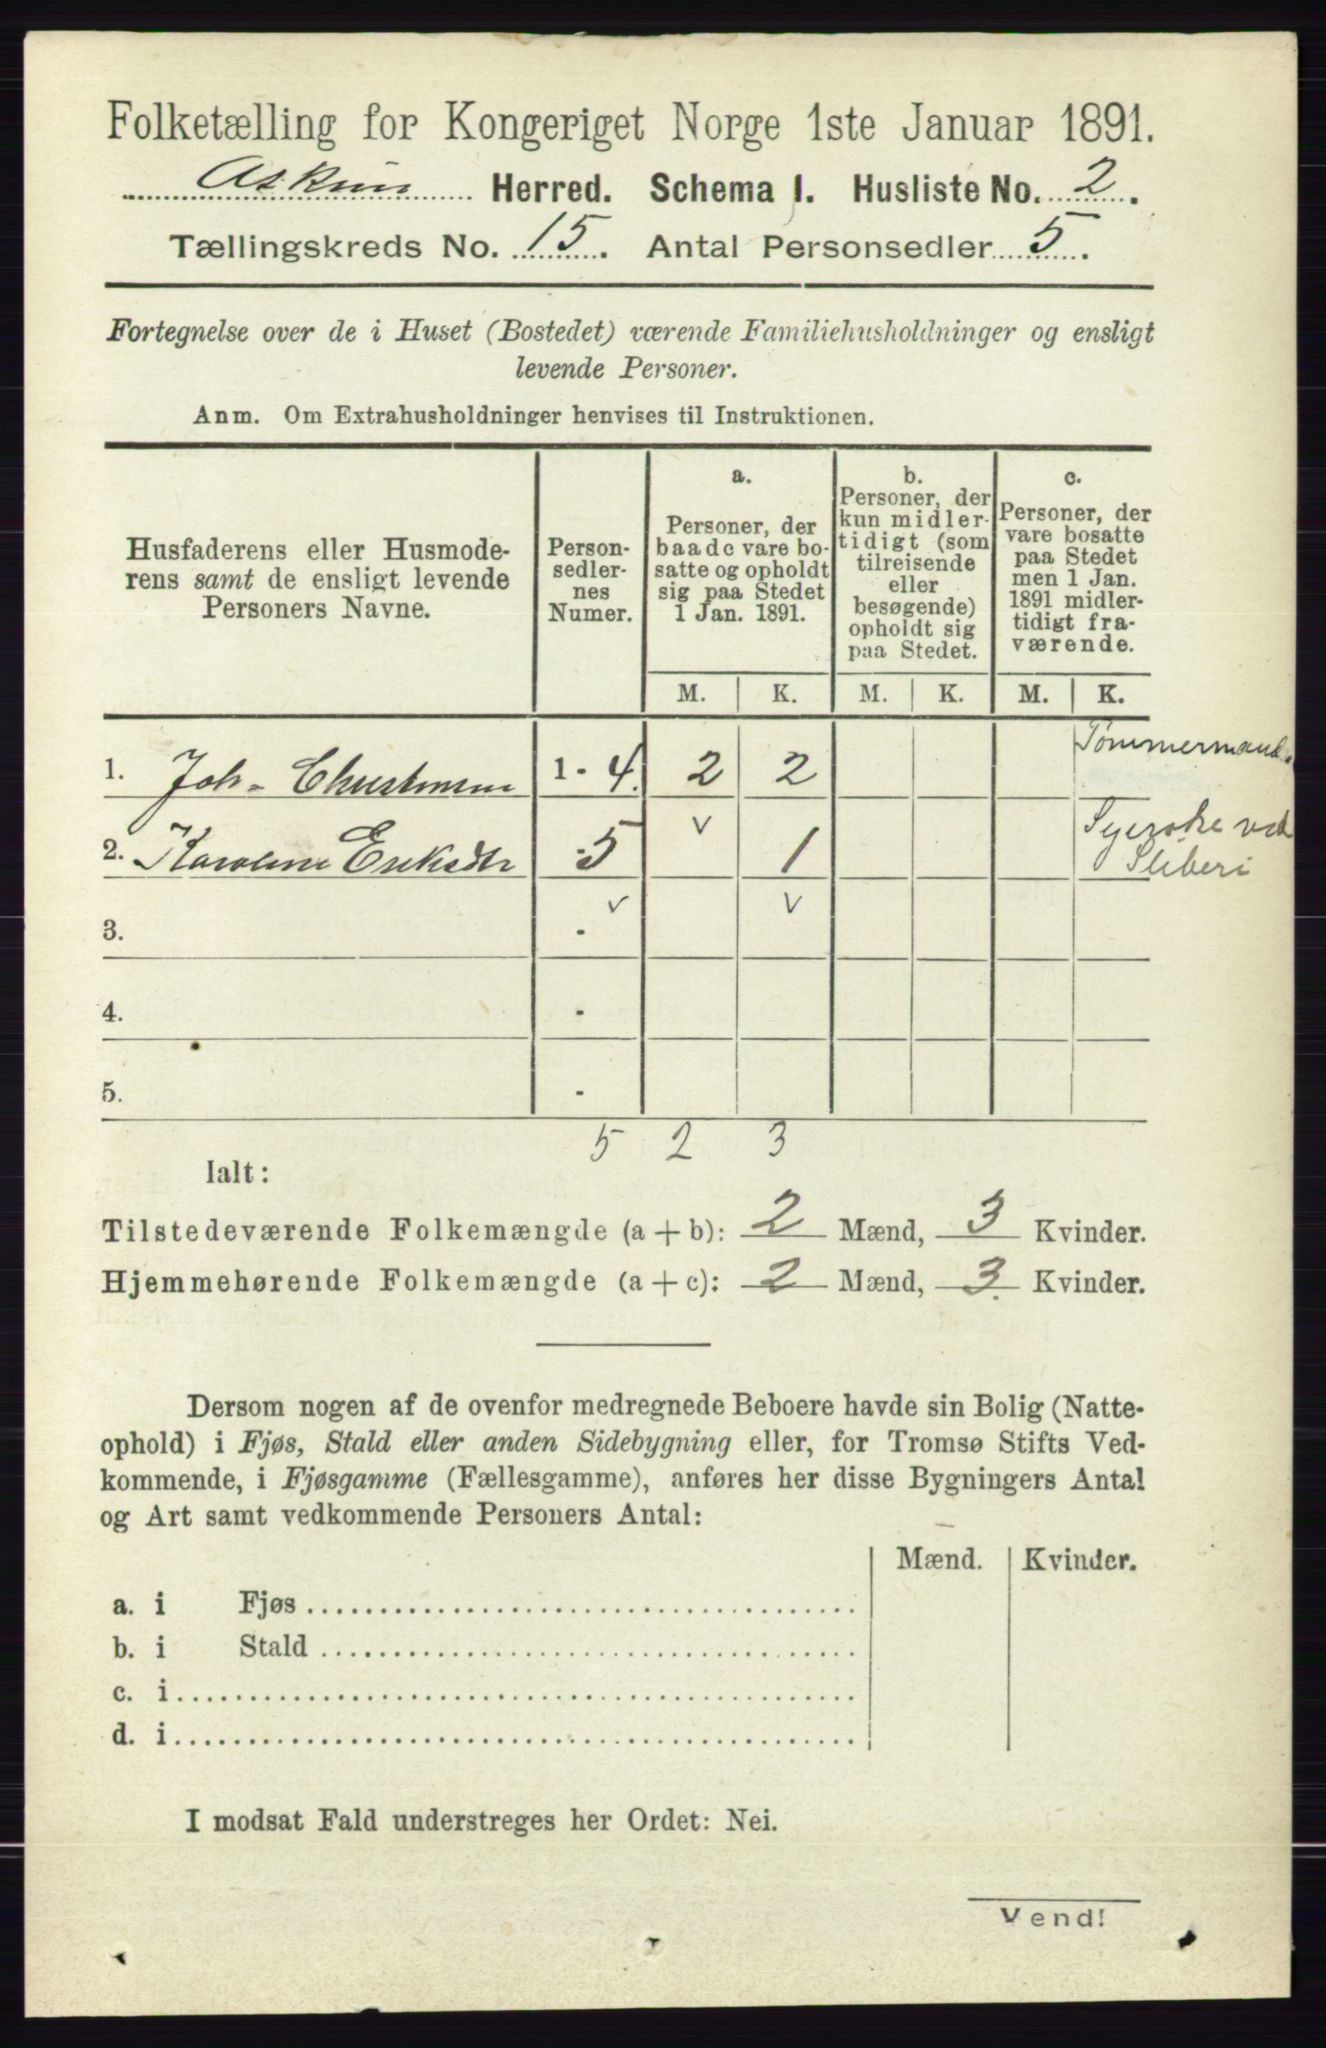 Folketælling for Kongeriget Norge 1ste Januar 1891.
Askim Herred. Schema 1. Husliste No. 2.
Tællingskreds No. 15. Antal Personsedler 5.
Fortegnelse over de i Huset (Bostedet) værende Familiehusholdninger og ensligt
levende Personer.
Anm. Om Extrahusholdninger henvises til Instruktionen.
Husfaderens eller Husmode-
rens samt de ensligt levende
Personers Navne.
Person-
sedler-
nes
Numer.
a.
Personer, der
baade vare bo-
satte og opholdt
sig paa Stedet
1 Jan. 1891.
b.
Personer, der
kun midler-
tidigt (som
tilreisende
eller
besøgende)
opholdt sig
paa Stedet.
c.
Personer, der
vare bosatte
paa Stedet
men 1 Jan.
1891 midler-
tidigt fra-
værende.
M. K. M. K. M. K.
1. Joh. Christensen 1 - 4. 2 2 Tømmermand.
2. Karoline Eriksdtr - 5 1 Syerske ved
3. -
4. -
5. -
5 2 3
Ialt:
Tilstedeværende Folkemængde (a + b): 2 Mænd, 3 Kvinder.
Hjemmehørende Folkemængde (a + c): 2 Mænd, 3. Kvinder.
Dersom nogen af de ovenfor medregnede Beboere havde sin Bolig (Natte-
ophold) i Fjøs, Stald eller anden Sidebygning eller, for Tromsø Stifts Ved-
kommende, i Fjøsgamme (Fællesgamme), anføres her disse Bygningers Antal
og Art samt vedkommende Personers Antal:
Mænd. Kvinder.
a. i Fjøs
b. i Stald
c. i
d. i
I modsat Fald understreges her Ordet: Nei.
Vend!